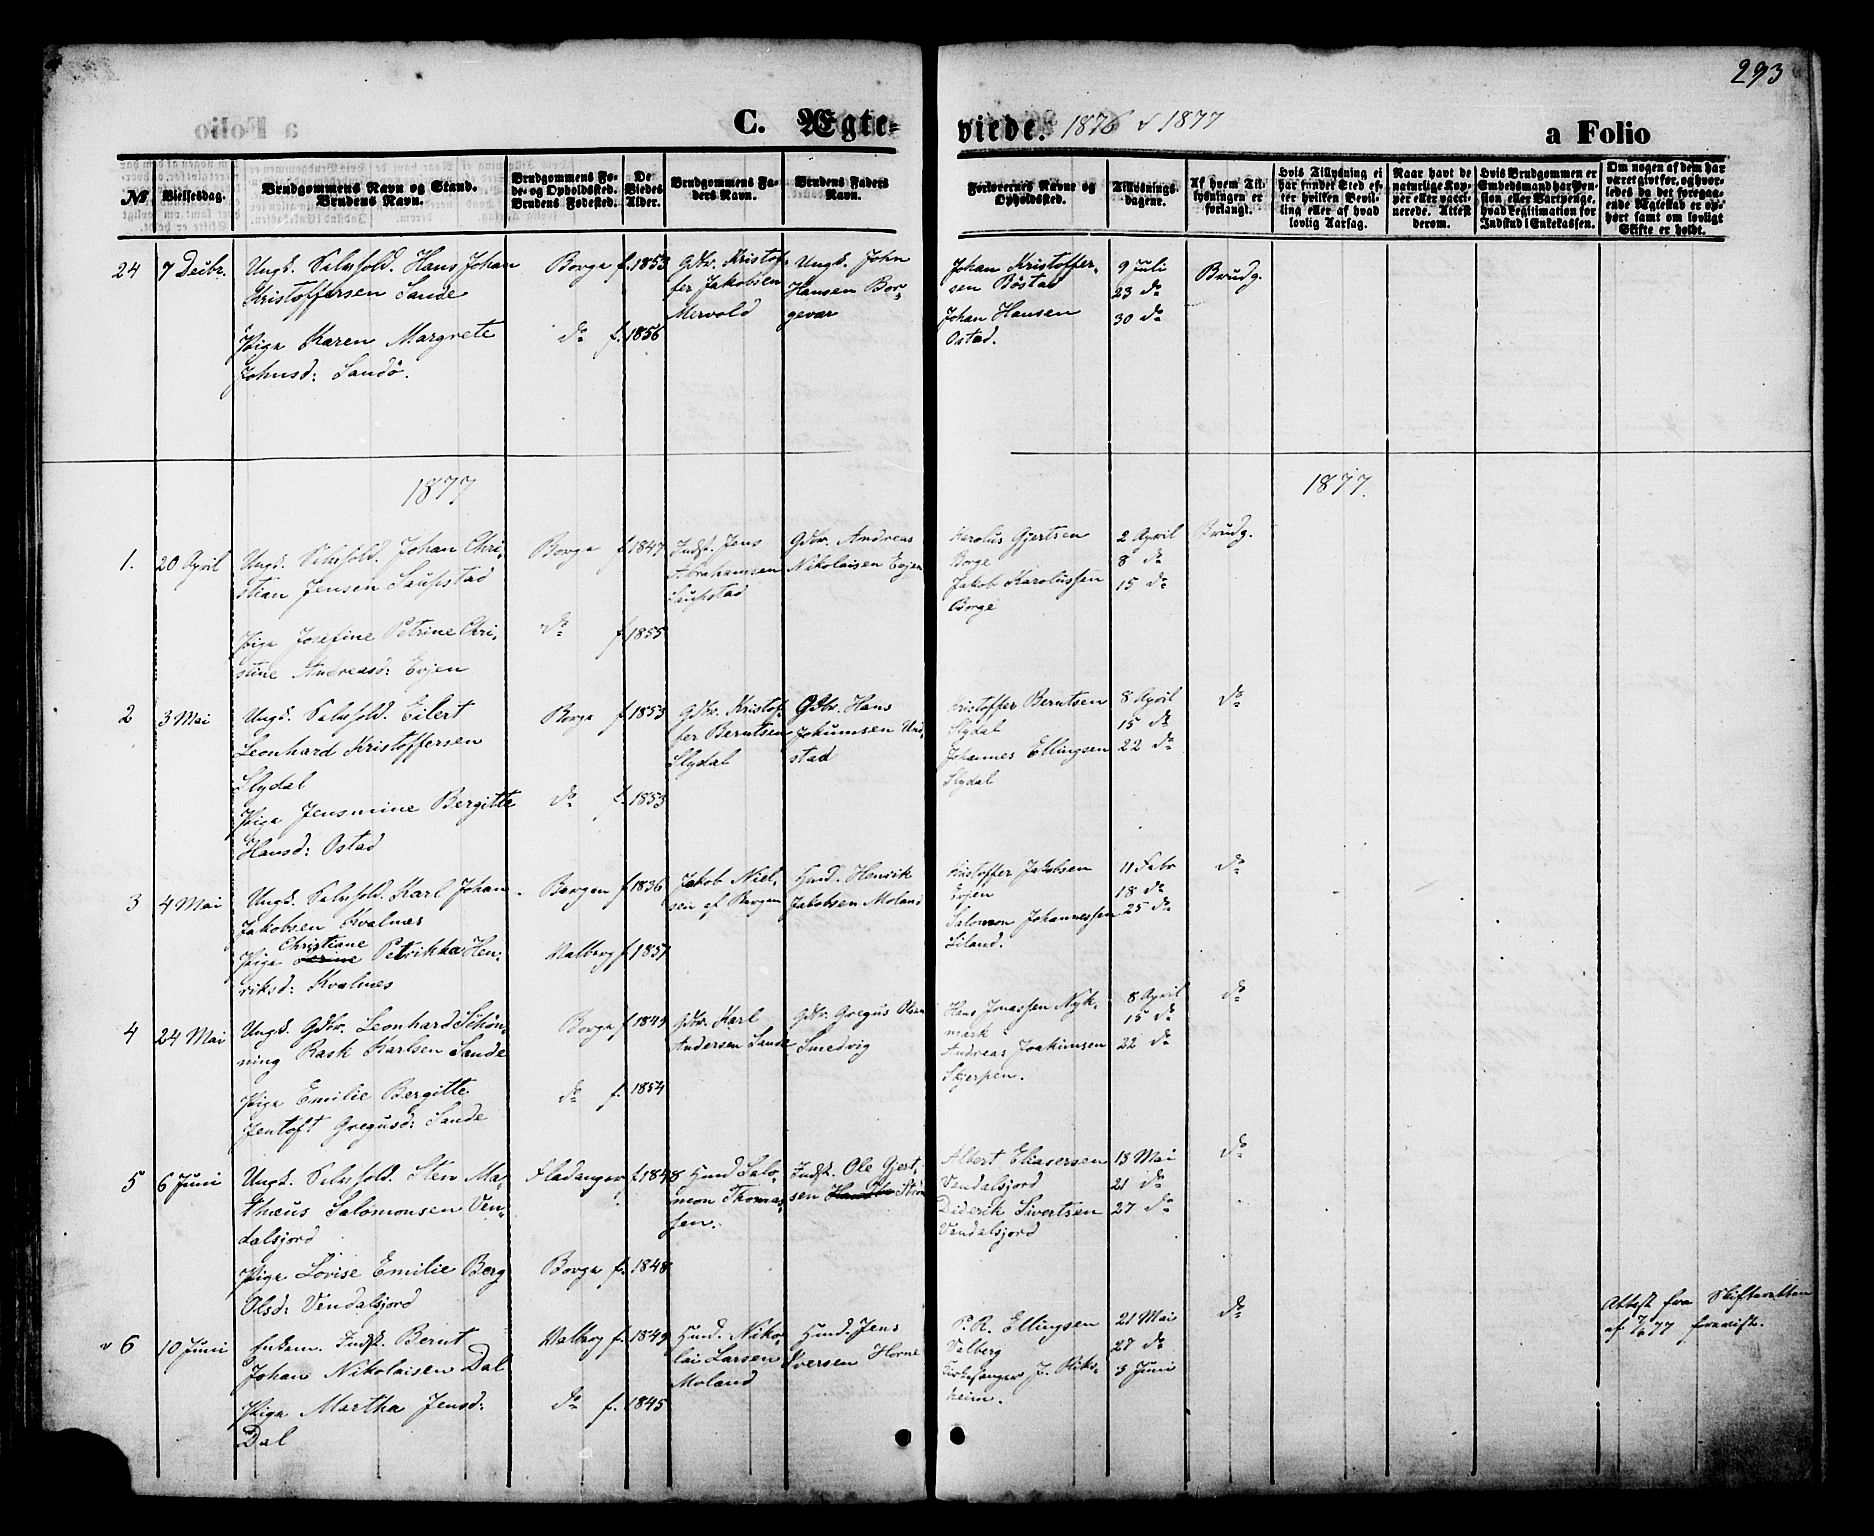 293
C. Ægte-
vi​ede. 1876 & 1877
a Folio
№
Vielsesdag.
Brudgommens Navn og Stand.
Brudens Navn.
Brudgommens Fø-
de- og Opholdssted.
Brudens Fødested.
De
Viedes
Alder.
Brudgommens Fa-
ders Navn.
Brudens Faders
Navn.
Forlovernes Navne og
Opholdssted.
Tillysnings-
dagene.
Af hvem Til-
lysningen er
forlangt.
Hvis Tillysning ei
har fundet Sted ef-
ter hvilken Bevil-
ling eller af hvad
lovlig Aarsag.
Naar havt de
naturlige Kop-
per eller vacci-
nerede. Attest
derom.
Hvis Brudgommen er
Embedsmand har Pen-
sion eller Vartpenge,
hvad Legitimation for
Indskud i Enkekassen.
Om nogen af dem har
været givt før, og hvor-
ledes da det foregaa-
ende Ægteskab er op-
hørt samt om lovligt
Skifte er holdt.
24
7 Decbr.
Ungk. Selvfold. Hans Johan
Kristoffersen Sande
Pige Karen Margrete
Johnsd: Sandö.
Borge f. 1853
do f. 1856
Gdbr. Kristof-
fer Jakobsen
Mervold
Ungk. John
Hansen Bor-
gevar
Johan Kristoffer-
sen Böstad
Johan Hansen
Ostad.
9 Juli
23 do
30 do
Brudg.
1877
1877.
1.
20 April
Ungk. Selvfold. Johan Chri-
stian Jensen Saupstad
Pige Josefine Petrine Chri-
stine Andreasd: Evjen
Borge f. 1847
do f. 1855
Indst. Jens
Abrahamsen
Saupstad
Gdbr. Andreas
Nikolaisen Evjen
Karolus Gjertsen
Borge
Jakob Karolussen
Borge
2 April
8 do
15 do
Brudg.
2
3 Mai
Ungk. Selvfold. Eilert
Leonhard Kristoffersen
Slydal
Pige Jensmine Bergitte
Hansd: Ostad
Borge f. 1853
do f. 1853
Gdbr. Kristof-
fer Berntsen
Slydal
Gdbr. Hans
Jokumsen Und-
stad
Kristoffer Berntsen
Slydal
Johannes Ellingsen
Slydal
8 April
15 do
22 do
do
3
4 Mai
Ungk. Selvfold. Karl Johan
Jakobsen Kvalnes
Christiane
Pige Petrikka Hen-
riksd: Kvalnes
Bergen f. 1836
Valberg f. 1851
Jakob Niel-
sen af Bergen
Hund. Henrik
Jakobsen Moland
Kristoffer Jakobsen
Evjen
Salomon Johannessen
Liland.
11 Febr
18 do
25 do
do
4
24 Mai
Ungk. Gdbr. Leonhard Schön-
ning Rask Karlsen Sande
Pige Emilie Bergitte
Jentoft Gregusd: Sande
Borge f. 1849
do f. 1854
Gdbr. Karl
Andersen Sande
Gdbr. Gregus Olsen
Smedvig
Hans Jonassen Myk-
mark
Andreas Joakimsen
Skjerpen.
8 April
15 do
22 do
do
5
6 Juni
Ungk. Selvfold. Sten Ma-
thæus Salomonsen Ven-
dalsjord
Pige Lovise Emilie Berg
Olsd: Vendalsjord
Fladanger f. 1848
Borge f. 1848
Hund Salo-
mon Thomas-
sen.
Indst. Ole Gjert-
sen
Albert Eliasersen
Vendalsjord
Diderik Sivertsen
Vendalsjord
13 Mai
21 do
27 do
do
6
10 Juni
Enkem. Indst. Bernt
Johan Nikolaisen Dal
Pige Martha Jensd:
Dal
Valberg f. 1849
do f. 1845
Hund. Niko-
lai Larsen
Moland
Hund. Jens
Iversen Horne
P. R. Ellingsen
Valberg
Kirkesanger J. Riks-
heim.
21 Mai
27 do
3 Juni
do
Attest fra Skifteretten
af 7/6 77 forevist.